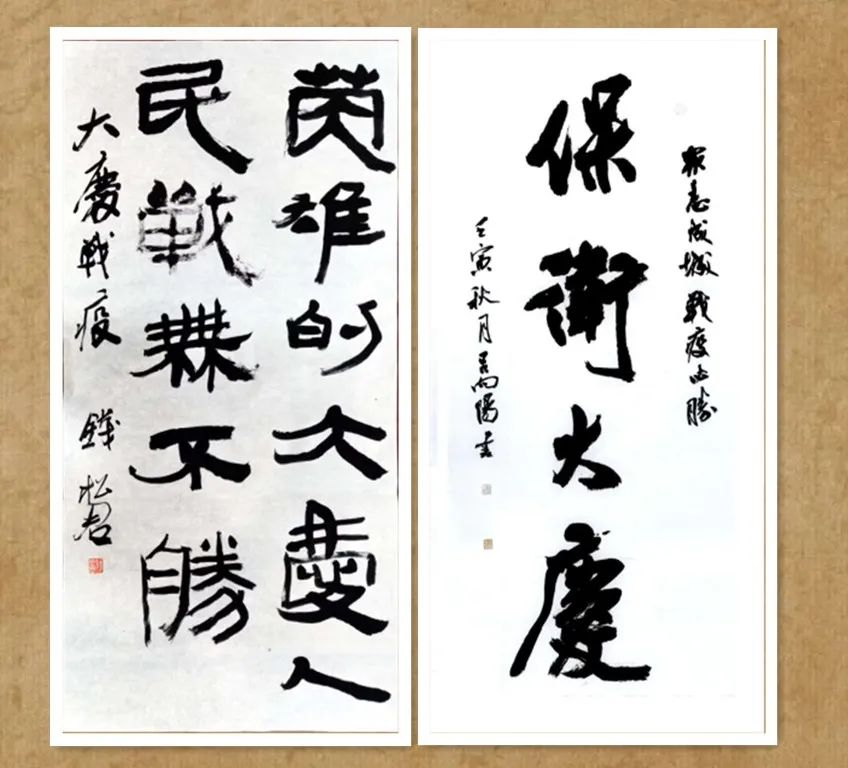 英雄的大慶人
民戰無不勝
大慶戰疫 錢松君
衆志成城 戰疫必勝
保衛大慶
壬寅秋月呂向陽書